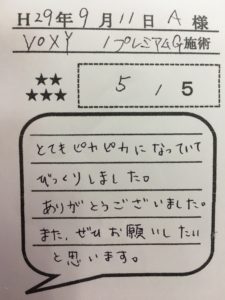 H29年9月11日 A 様
VOXY / プレミアムG施術
★★
★★★
5 / 5
とてもピカピカになっていて
びっくりしました。
ありがとうございました。
また、ぜひお願いしたい
と思います。